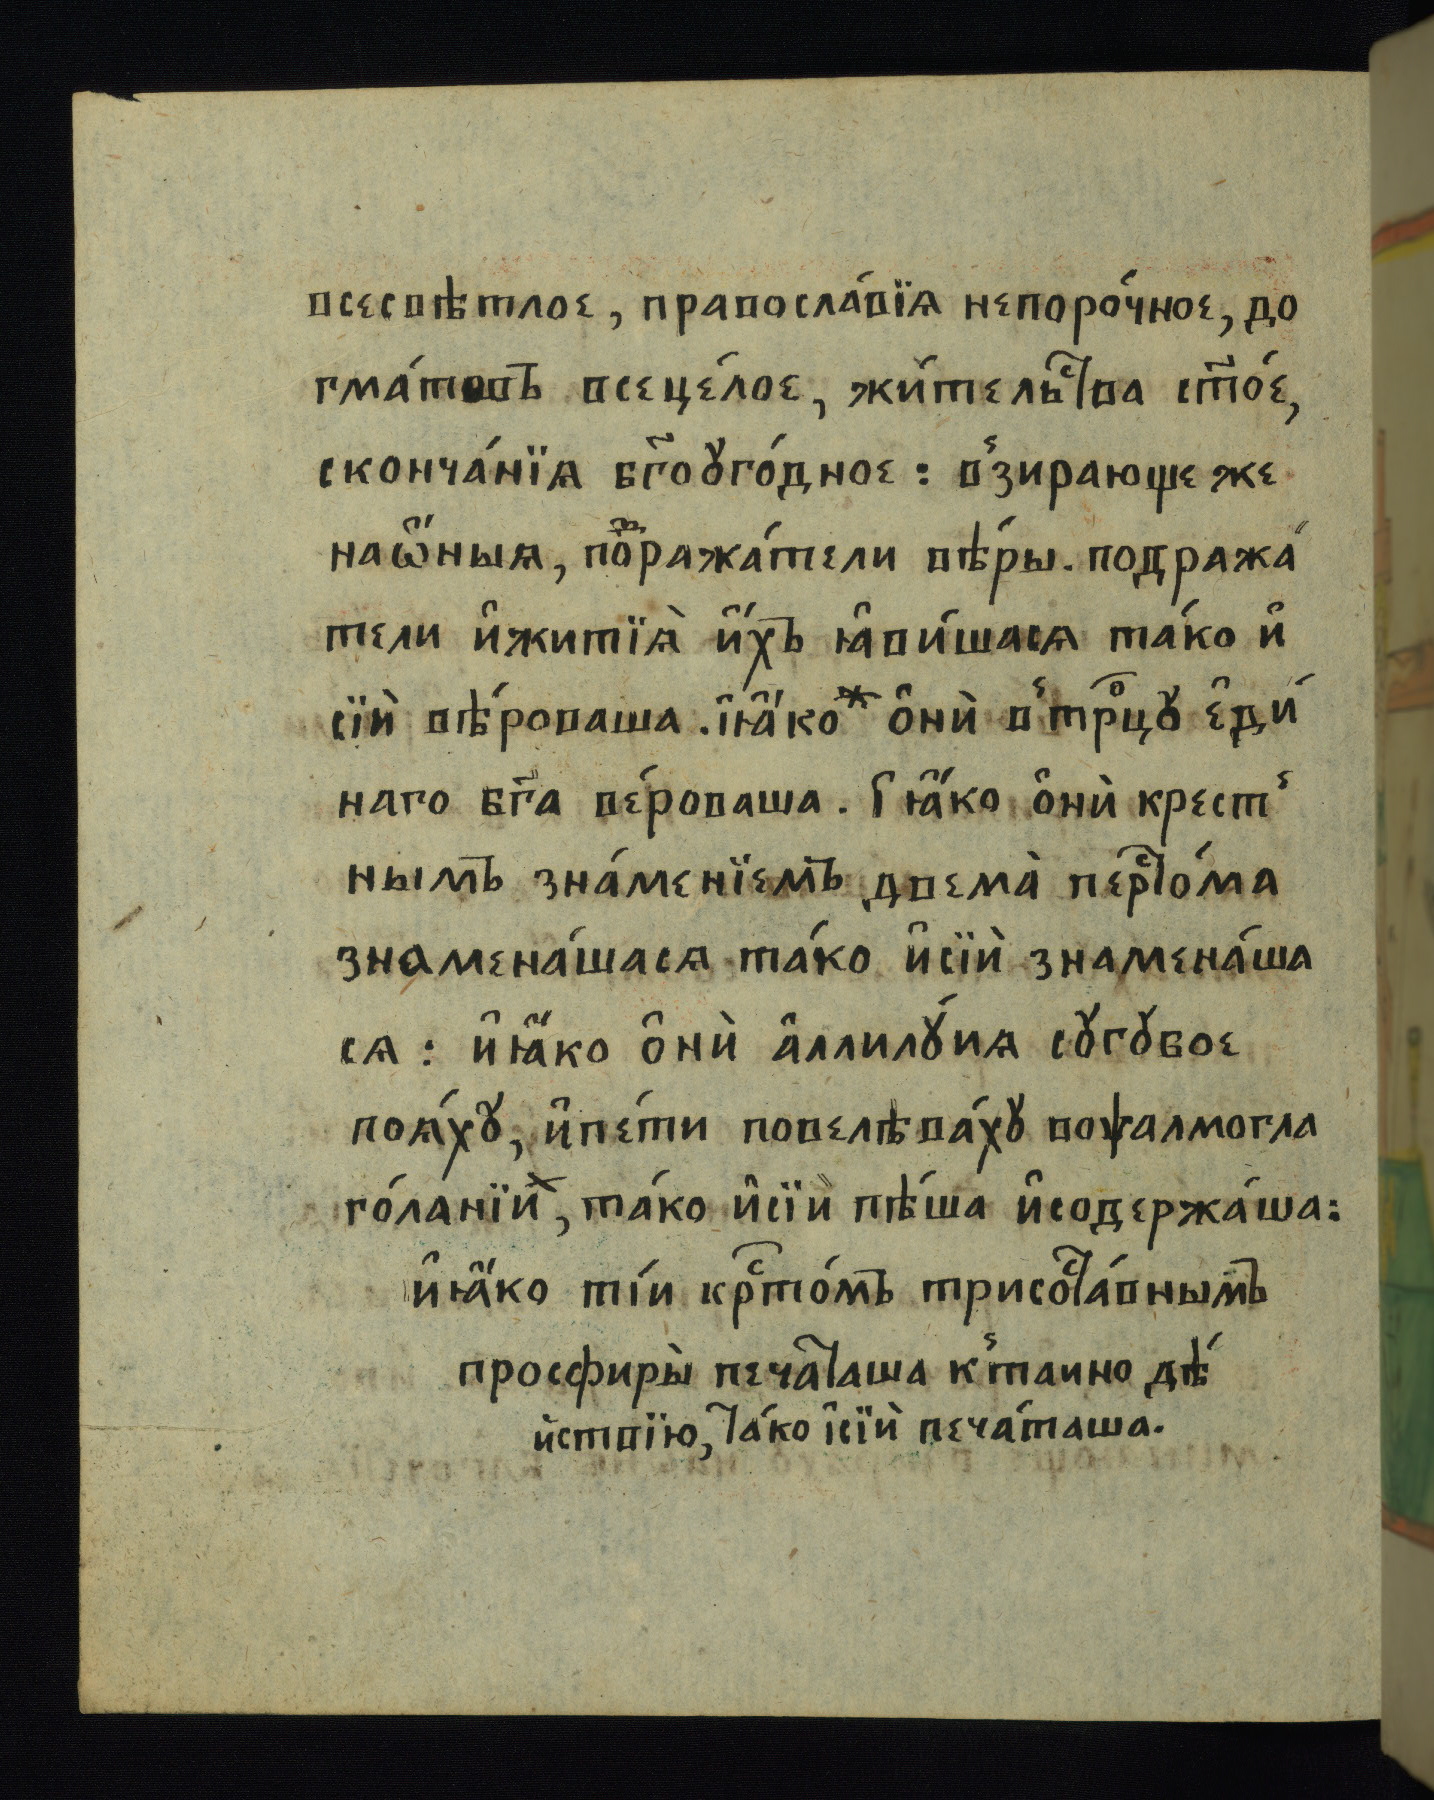 всесвѣтлое, правосла́вїѧ непоро́чное, до
гма́товъ всеце́лое, жи́тельⷭ҇тва ст҃о́е,
сконча́нїѧ бг҃оꙋго́дное: в̾зирающе же
наѡ҆́ныѧ, поⷣража́тели вѣ́ры. подража́
тели и҆житїѧ̀ и҆́хъ ꙗ҆ви́шасѧ та́ко и҆
сїѝ вѣ́роваша. і҆ꙗ҆́коⷤ о҆нѝ в̾трⷪ҇цꙋ є҆ди́
наго бг҃а ве́роваша. І҆ ꙗ҆́ко о҆нѝ крест̾
нымъ зна́менїемъ двема̀ перⷭ҇то́ма
знамена́шасѧ та́ко и҆сїѝ знамена́ша
сѧ: и҆ꙗ҆́ко о҆нѝ а҆ллилꙋ́иѧ сꙋгꙋбое
поѧ́хꙋ, и҆пе́ти повелѣва́хꙋ воѱалмогла
го́ланїиⷯ, та́ко и҆сїѝ пѣ́ша и҆содержа́ша:
и҆ꙗ҆́ко ті́и крⷭ҇то́мъ трисоⷭ҇та́внымъ
просфиры̀ печа́таша к̾таино дѣ́
йствїю, та́ко і҆сїѝ печа́таша.